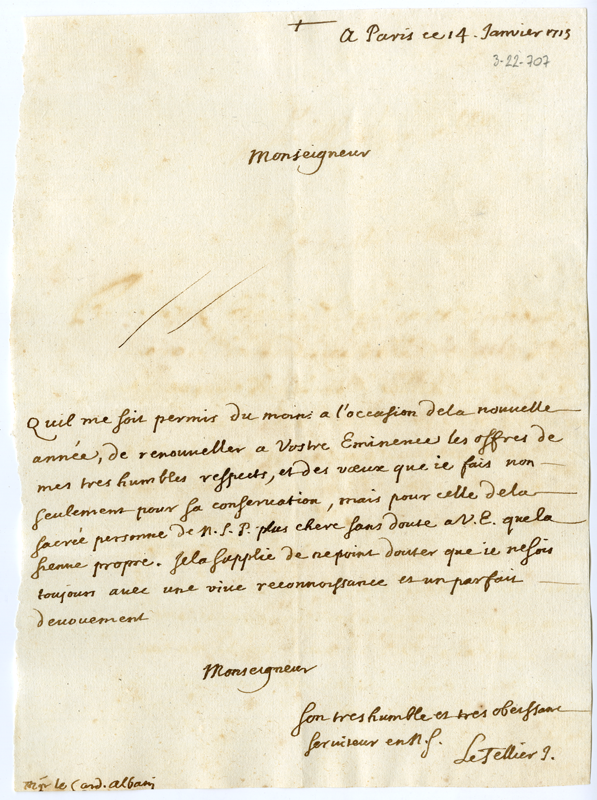 A Paris ce 14. Janvier 1715
3-22-707
Monseigneur
Quil me soit permis du moins a l'occasion dela nouvelle
année, de renouveller a Vostre Eminence les offres de
mes tres humbles respects, et des vœux que ie fais non
seulement pour sa conservation, mais pour celle dela
sacrée personne de N.S.P. plus chere sans doute a V.E. quela
sienne propre. Jela supplie de nepoint douter que ie nesois
toujours avec une vive reconnoissance et un parfait
devouement
Monseigneur
Son tres humble et tres obeissant
serviteur en N.S.
LeTellier J.
Mgr le Card. Albani